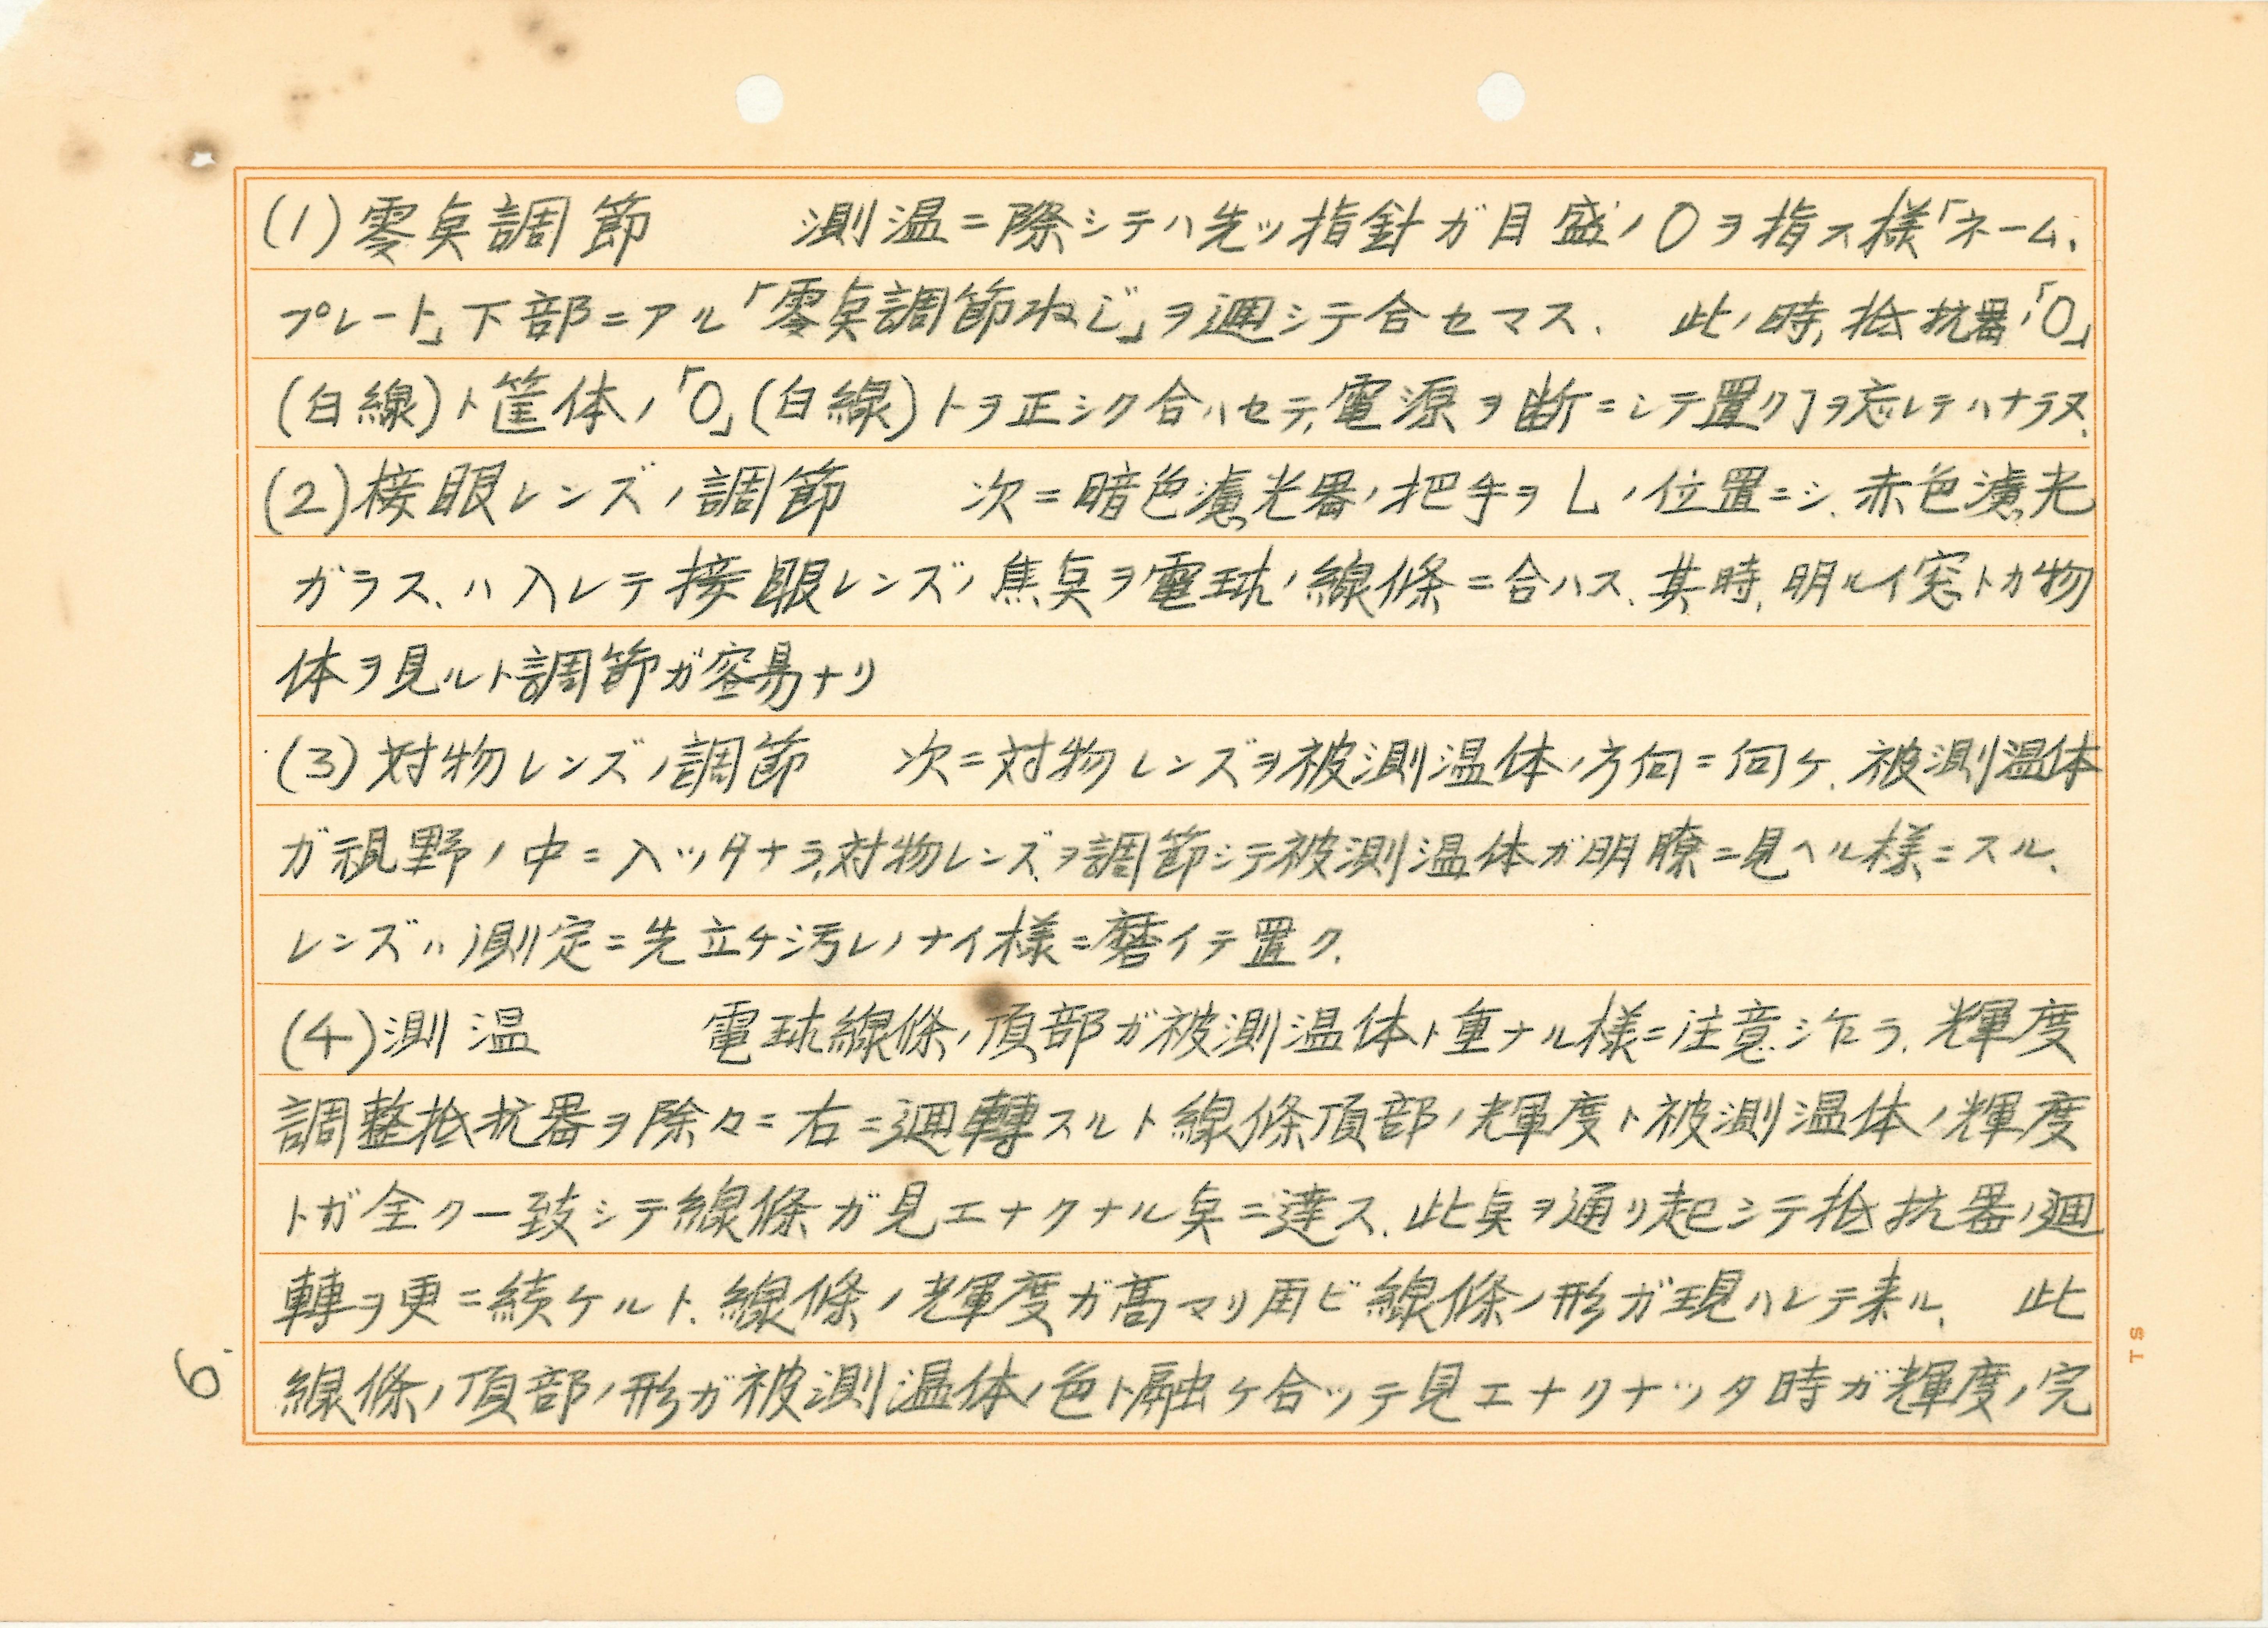 (1)零点調節　測温ニ際シテハ先ッ指針ガ目盛ノ0ヲ指ス様「ネーム、
プレート」下部ニアル「零点調節ねじ」ヲ廻シテ合セマス、　此ノ時、抵抗器ノ「0」
(白線)ト筐体ノ「0」(白線)トヲ正シク合ハセテ、電源ヲ断ニシテ置クヿヲ忘レテハナラヌ、
(2)接眼レンズノ調節　次ニ暗色濾光器ノ把手ヲLノ位置ニシ、赤色濾光
ガラス、ハ入レテ接眼レンズノ焦点ヲ電球ノ線條ニ合ハス、其時、明ルイ窓トカ物
体ヲ見ルト調節ガ容易ナリ
(3)対物レンズノ調節　次ニ対物レンズヲ被測温体ノ方向ニ向ケ、被測温体
ガ視野ノ中ニ入ッタナラ、対物レンズヲ調節シテ被測温体ガ明瞭ニ見ヘル様ニスル、
レンズハ測定ニ先立チ汚レノナイ様ニ磨イテ置ク、
(4)測温　電球線條ノ頂部ガ被測温体ト重ナル様ニ注意シ乍ラ、輝度
調整抵抗器ヲ除々ニ右ニ廻轉スルト線條頂部ノ輝度ト被測温体ノ輝度
トガ全ク一致シテ線條ガ見エナクナル点ニ達ス、此点ヲ通リ起シテ抵抗器ノ廻
轉ヲ更ニ続ケルト、線條ノ輝度ガ高マリ再ビ線條ノ形ガ現ハレテ来ル、　此
線條ノ頂部ノ形ガ被測温体ノ色ト融ケ合ッテ見エナクナッタ時ガ輝度ノ完
6.
TS